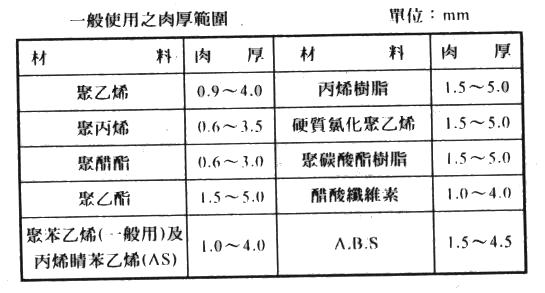 一般使用之肉厚範圍 單位：mm
材料 肉厚 材料 肉厚
聚乙烯 0.9～4.0 丙烯樹脂 1.5～5.0
聚丙烯 0.6～3.5 硬質氯化聚乙烯 1.5～5.0
聚醋酯 0.6～3.0 聚碳酸酯樹脂 1.5～5.0
聚乙酯 1.5～5.0 醋酸纖維素 1.0～4.0
聚苯乙烯(一般用)及
丙烯睛苯乙烯(AS) 1.0～4.0 A.B.S 1.5～4.5